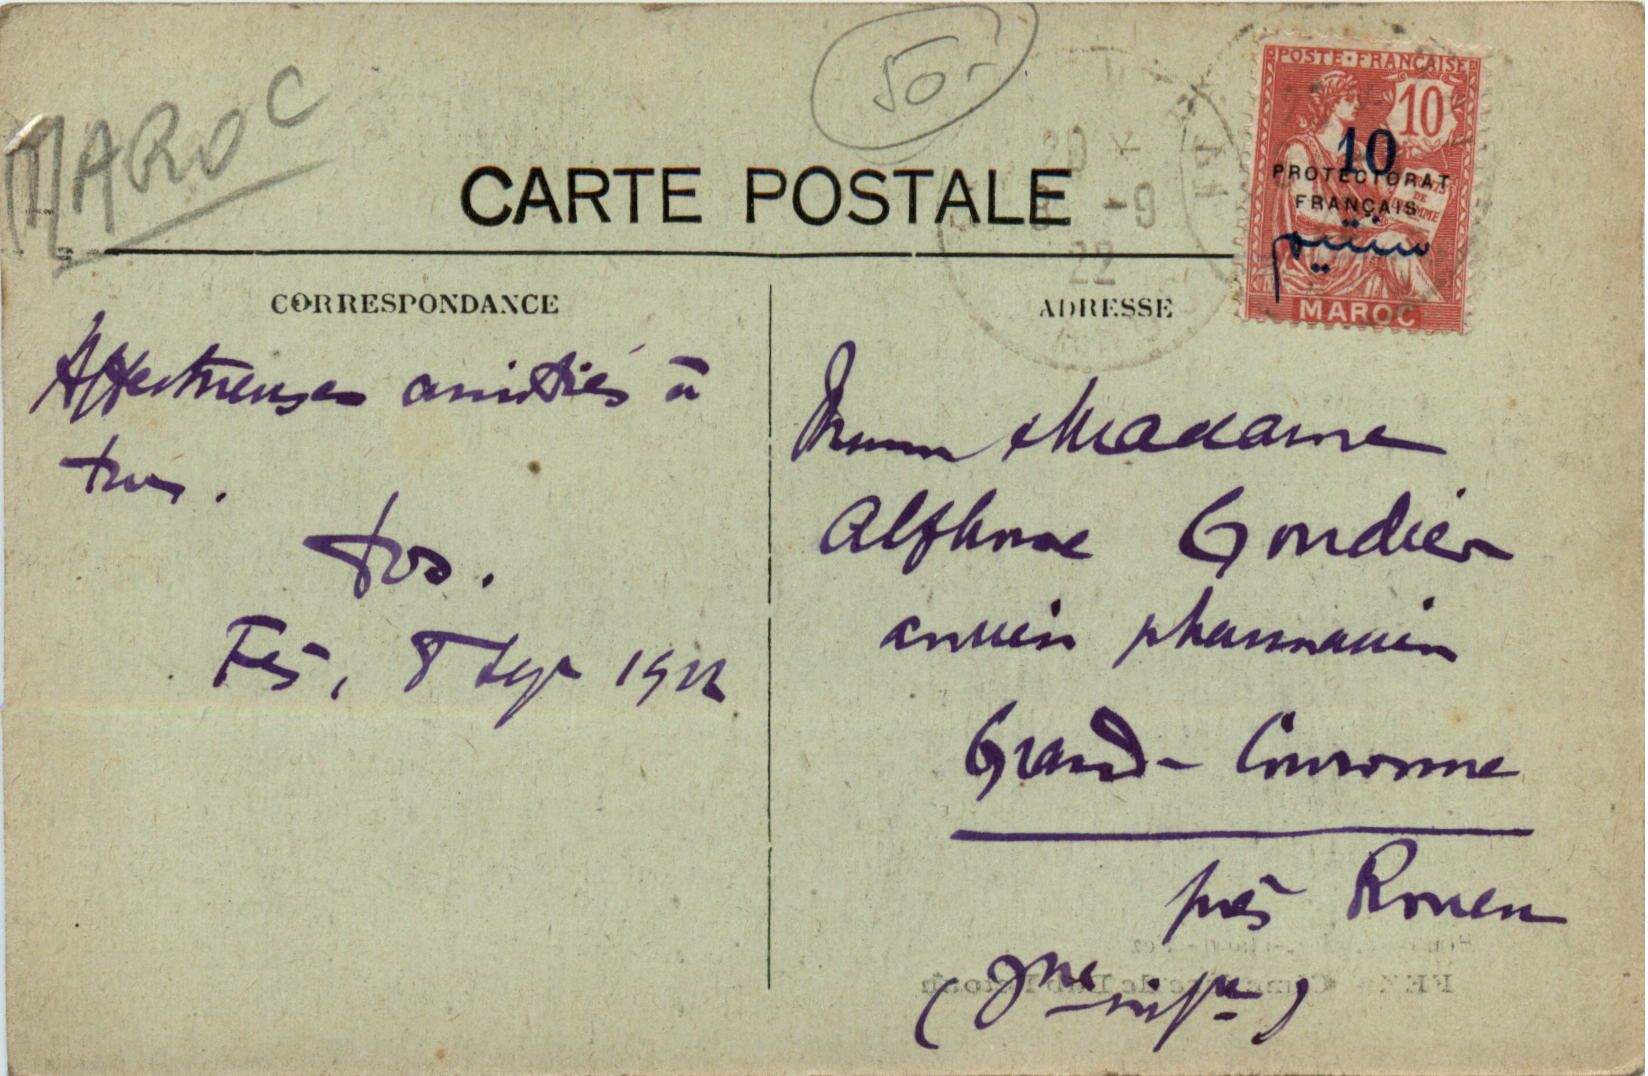 MAROC
50.-
CARTE POSTALE
POSTE FRANÇAISE
10
10
PROTECTORAT
FRANÇAIS
سنتيم
MAROC
20
8 -9
22
CORRESPONDANCE
Affectueuses amitiés à
tous.
Fès, 8 Sept 1922
ADRESSE
Madame
Alphonse Gondier
ancien pharmacien
Grand-Couronne
près Rouen
(Sne infre)